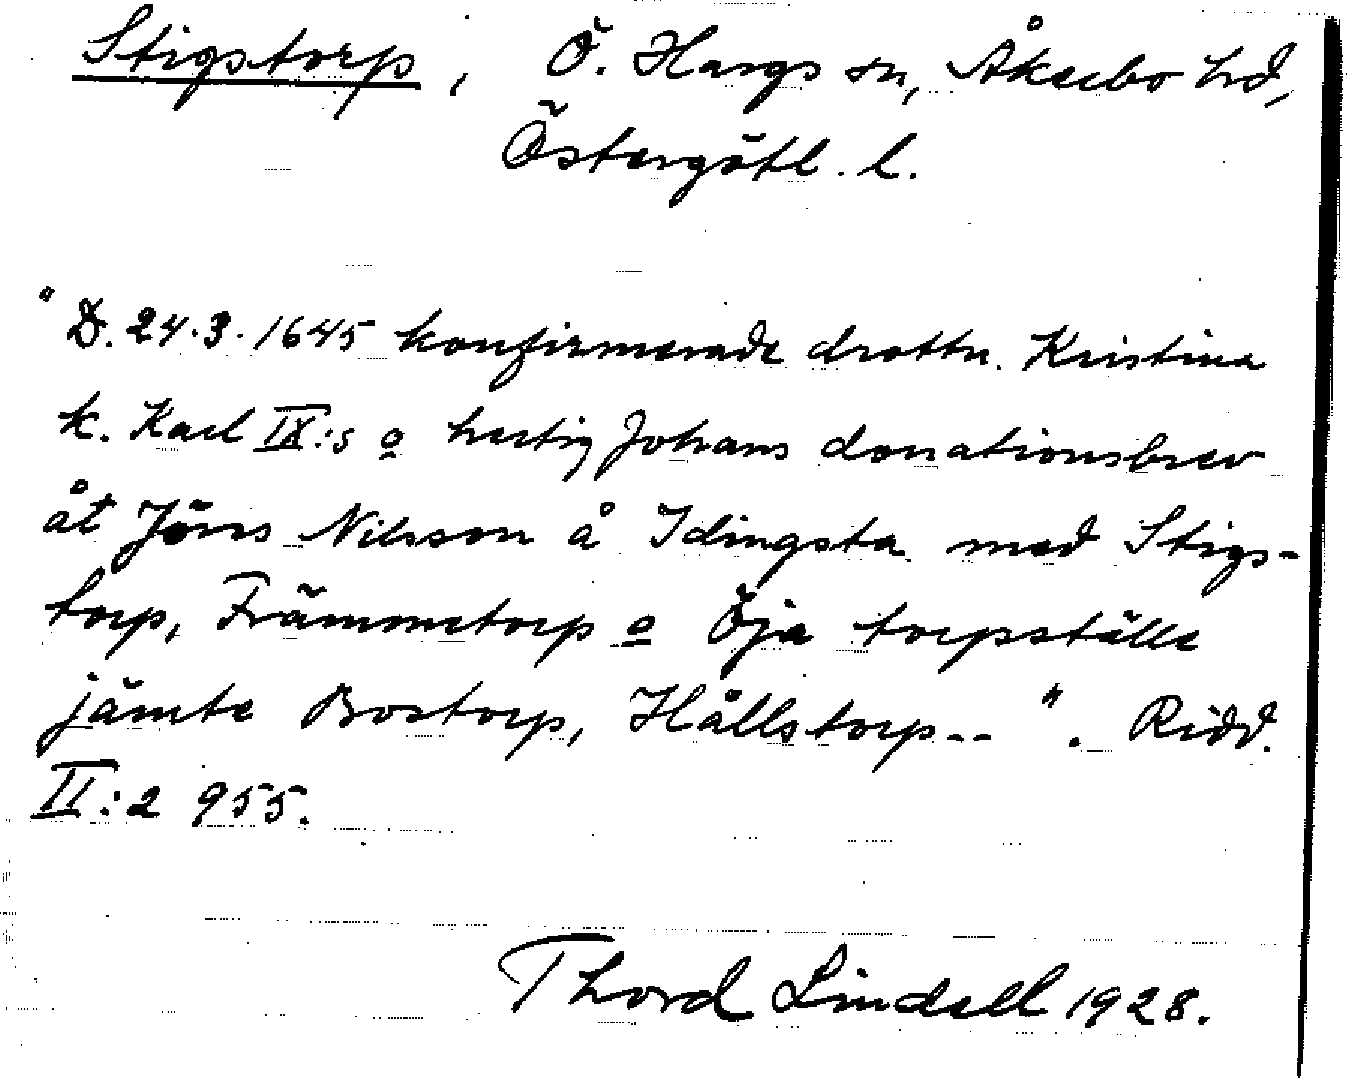 Stigstorp, Ö. Hargs sn, Åkerbo hd,
Östergötl. l.
"D. 24.3.1645 konfirmerade drottn. Kristina
k. Karl IX:s o hertig Johans donationsbrev
åt Jöns Nilsson å Idingsta med Stigs-
torp, Främmetorp o Öja torpställe
jämte Bostorp, Hållstorp--". Ridd.
II:2 955.
Thord Lindell 1928.